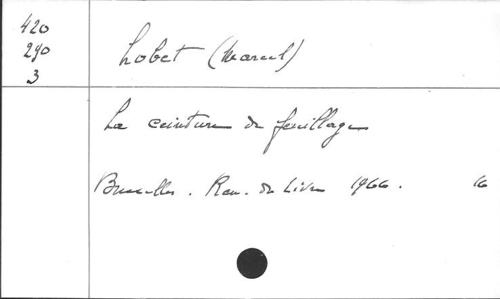 420
290
3
Lobet (Marcel)
La ceinture de feuillage
Bruxelles. Ren. du Livre 1966. 16